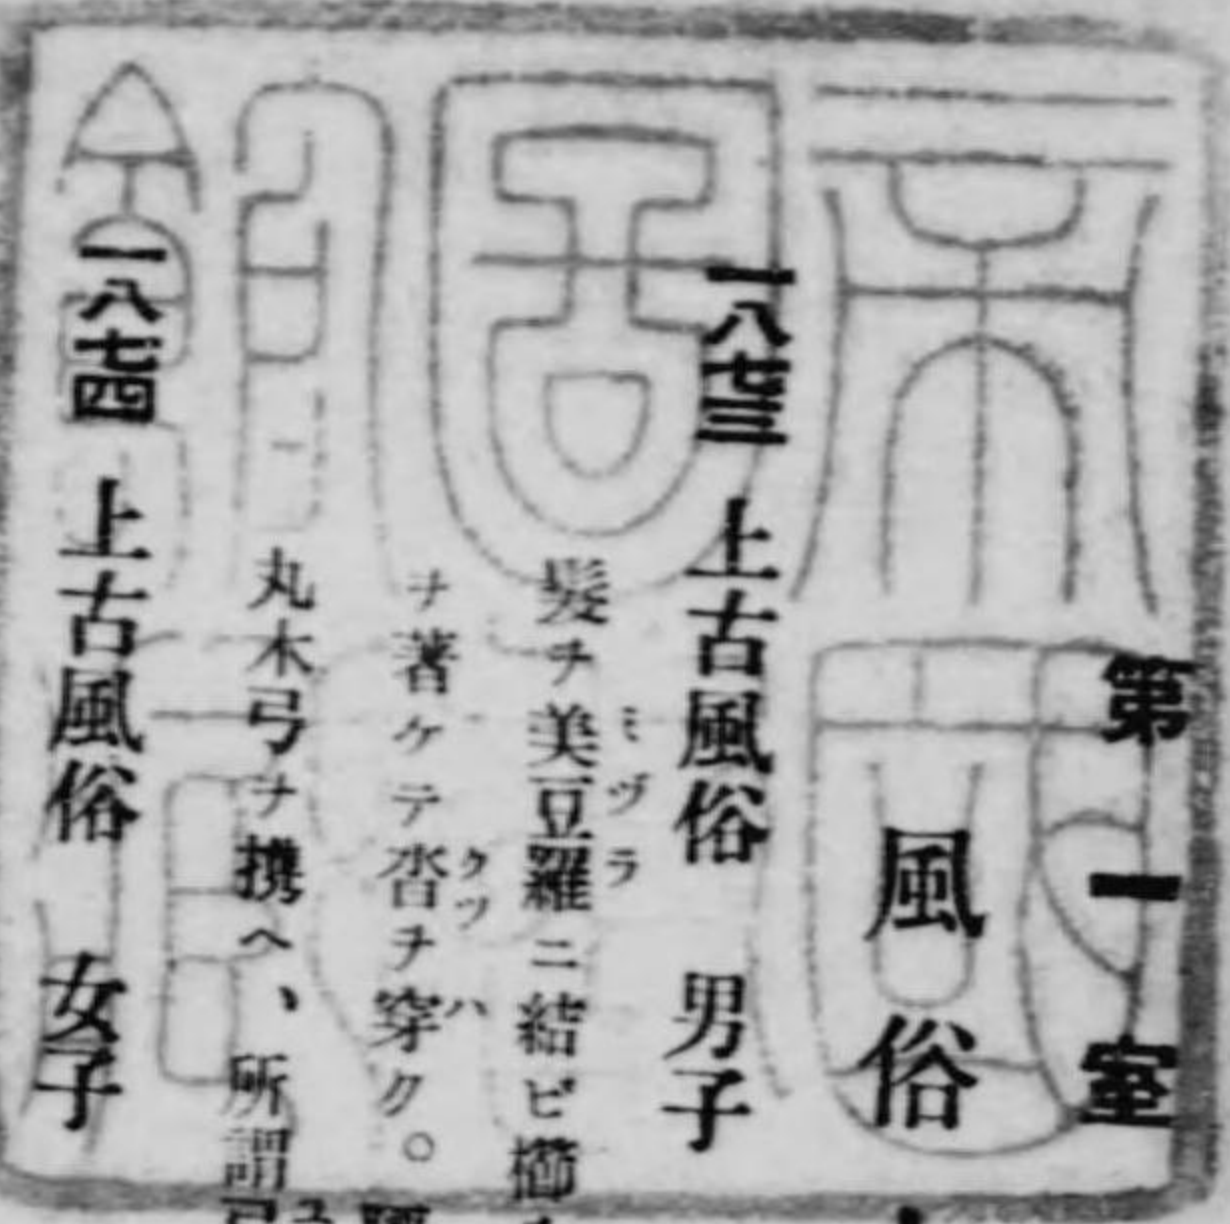 第一室
風俗
一八七三 上古風俗 男子
髮ヲ美豆羅ニ結ビ櫛
ミヅラ
ヲ著ケテ沓ヲ穿ク。
クツ ハ
丸木弓ヲ携ヘ、所謂
一八七四 上古風俗 女子